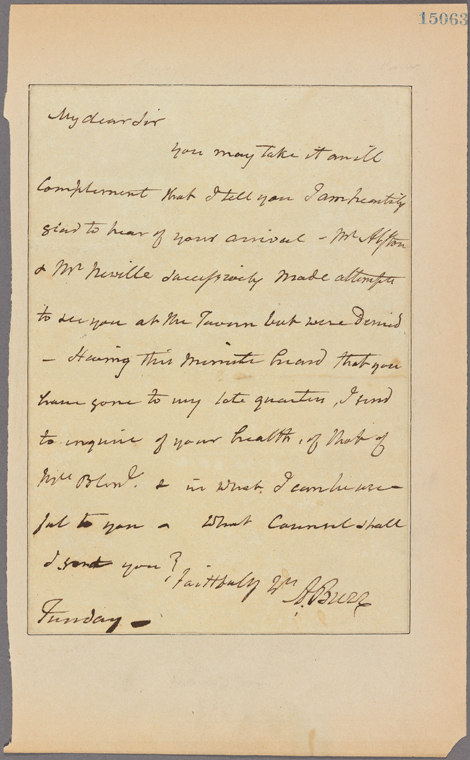 15063
My dear Sir
you may take it an ill
Complement that I tell you I am heartily
glad to hear of your arrival – Mr. Alston
& Mr Neville successively made attempts
to see you at the Tavern but were Denied
– Having this minute heard that you
have gone to my late quarters, I send
to inquire of your health, of that of
& in what I can be use-
ful to you – What Counsel shall
I send you?
faithfully Yrs
A. Burr
Tunday –